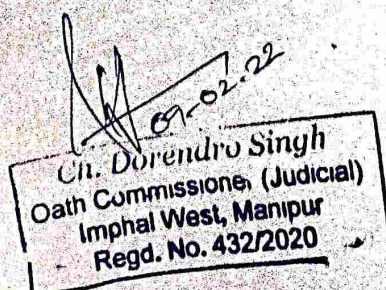 09-02-22
Ch. Dorendro Singh
Oath Commissioner (Judicial)
Imphal West, Manipur
Regd. No. 432/2020